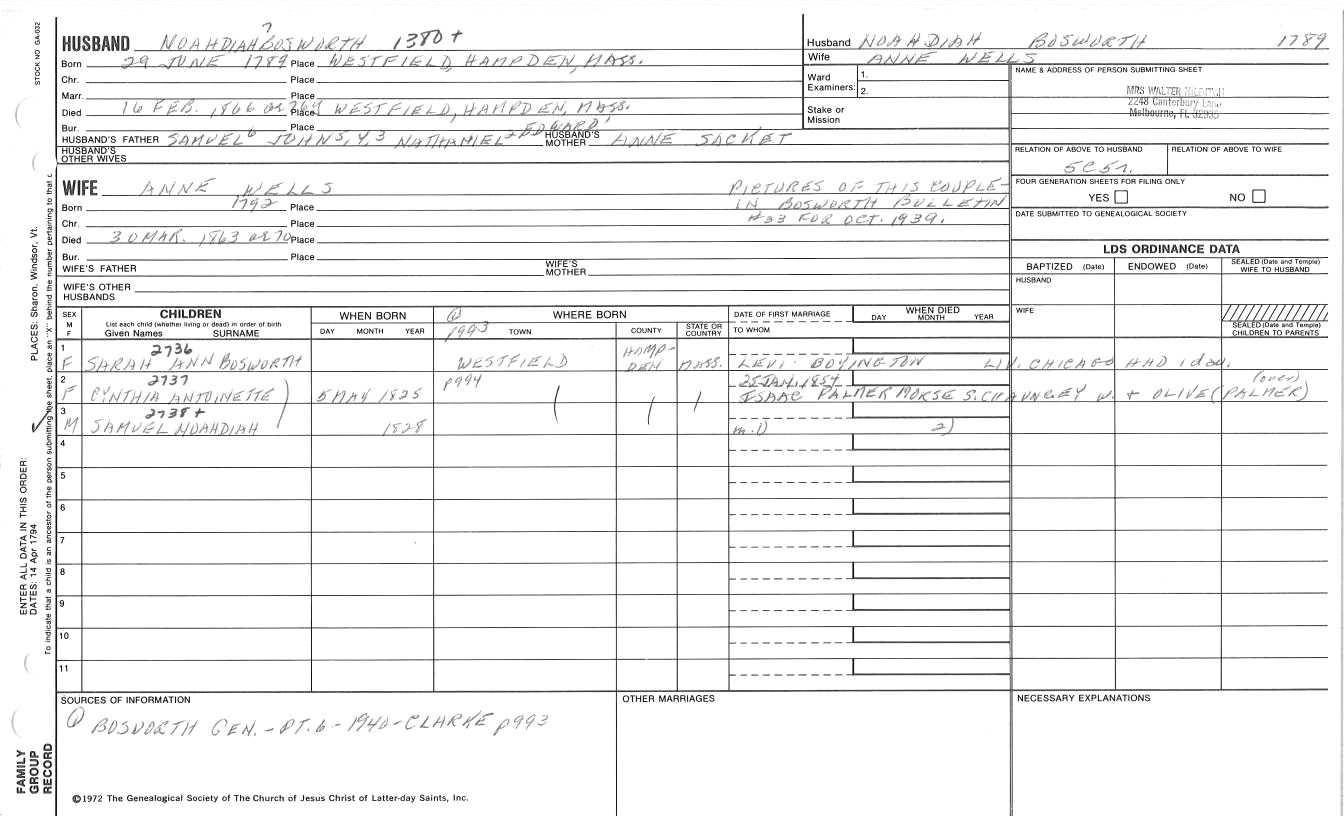 STOCK NO GA-032
7
HUSBAND NOAHDIAH BOSWORTH 1380+
Husband NOAHDIAH BOSWORTH 1789
Born 29 JUNE 1789 Place WESTFIELD, HAMPDEN, MASS.
Wife ANNE WELLS
Chr. Place
Ward Examiners: 1. 2.
Marr. Place
Died 16 FEB. 1866 or 264 Place WESTFIELD, HAMPDEN, MASS.
Stake or Mission
Bur. Place
HUSBAND'S FATHER SAMUEL 6 JOHN 5, 4, 3 NATHANIEL 2 EDWARD 1 HUSBAND'S MOTHER ANNE SACKET
HUSBAND'S OTHER WIVES
NAME & ADDRESS OF PERSON SUBMITTING SHEET
MRS WALTER
2248 Canterbury Lane
Melbourne, FL 32935
RELATION OF ABOVE TO HUSBAND
RELATION OF ABOVE TO WIFE
5C5r.
FOUR GENERATION SHEETS FOR FILING ONLY
YES NO
DATE SUBMITTED TO GENEALOGICAL SOCIETY
WIFE ANNE WELLS
PICTURES OF THIS COUPLE-
IN BOSWORTH BULLETIN
#33 FOR OCT. 1939.
Born 1792 Place
Chr. Place
Died 30 MAR. 1863 or 70 Place
Bur. Place
WIFE'S FATHER WIFE'S MOTHER
WIFE'S OTHER HUSBANDS
LDS ORDINANCE DATA
BAPTIZED (Date) ENDOWED (Date) SEALED (Date and Temple) WIFE TO HUSBAND
HUSBAND
WIFE
SEALED (Date and Temple) CHILDREN TO PARENTS
SEX M F
CHILDREN
List each child (whether living or dead) in order of birth
Given Names SURNAME
WHEN BORN
DAY MONTH YEAR
① p993
WHERE BORN
TOWN COUNTY STATE OR COUNTRY
DATE OF FIRST MARRIAGE
TO WHOM
WHEN DIED
DAY MONTH YEAR
1 2736
F SARAH ANN BOSWORTH WESTFIELD HAMP-DEN MASS. LEVI BOYINGTON LIV. CHICAGO HAD 1 dau.
2 2737 p994 25 JAN. 1854 (over)
F CYNTHIA ANTOINETTE) 5 MAY 1825 ISAAC PALMER MORSE S. CHAUNCEY W. + OLIVE (PALMER)
3 2738+
M SAMUEL NOAHDIAH 1828 m. 1) 2)
4
5
6
7
8
9
10
11
SOURCES OF INFORMATION
① BOSWORTH GEN. - PT. 6 - 1940 - CLARKE p993
OTHER MARRIAGES
NECESSARY EXPLANATIONS
©1972 The Genealogical Society of The Church of Jesus Christ of Latter-day Saints, Inc.
FAMILY GROUP RECORD
ENTER ALL DATA IN THIS ORDER:
DATES: 14 Apr 1794
PLACES: Sharon, Windsor, Vt.
To indicate that a child is an ancestor of the person submitting the sheet, place an "X" behind the number pertaining to that c